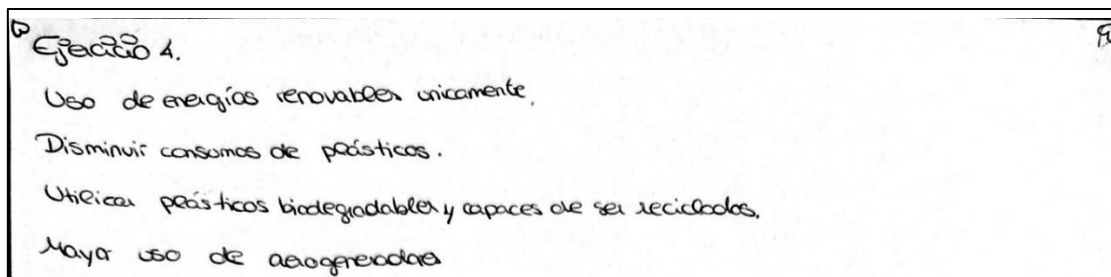 Ejercicio 4.
Uso de energías renovables unicamente.
Disminuir consumos de plásticos.
Utilizar plásticos biodegradables y capaces de ser reciclados.
Mayor uso de aerogeneradores